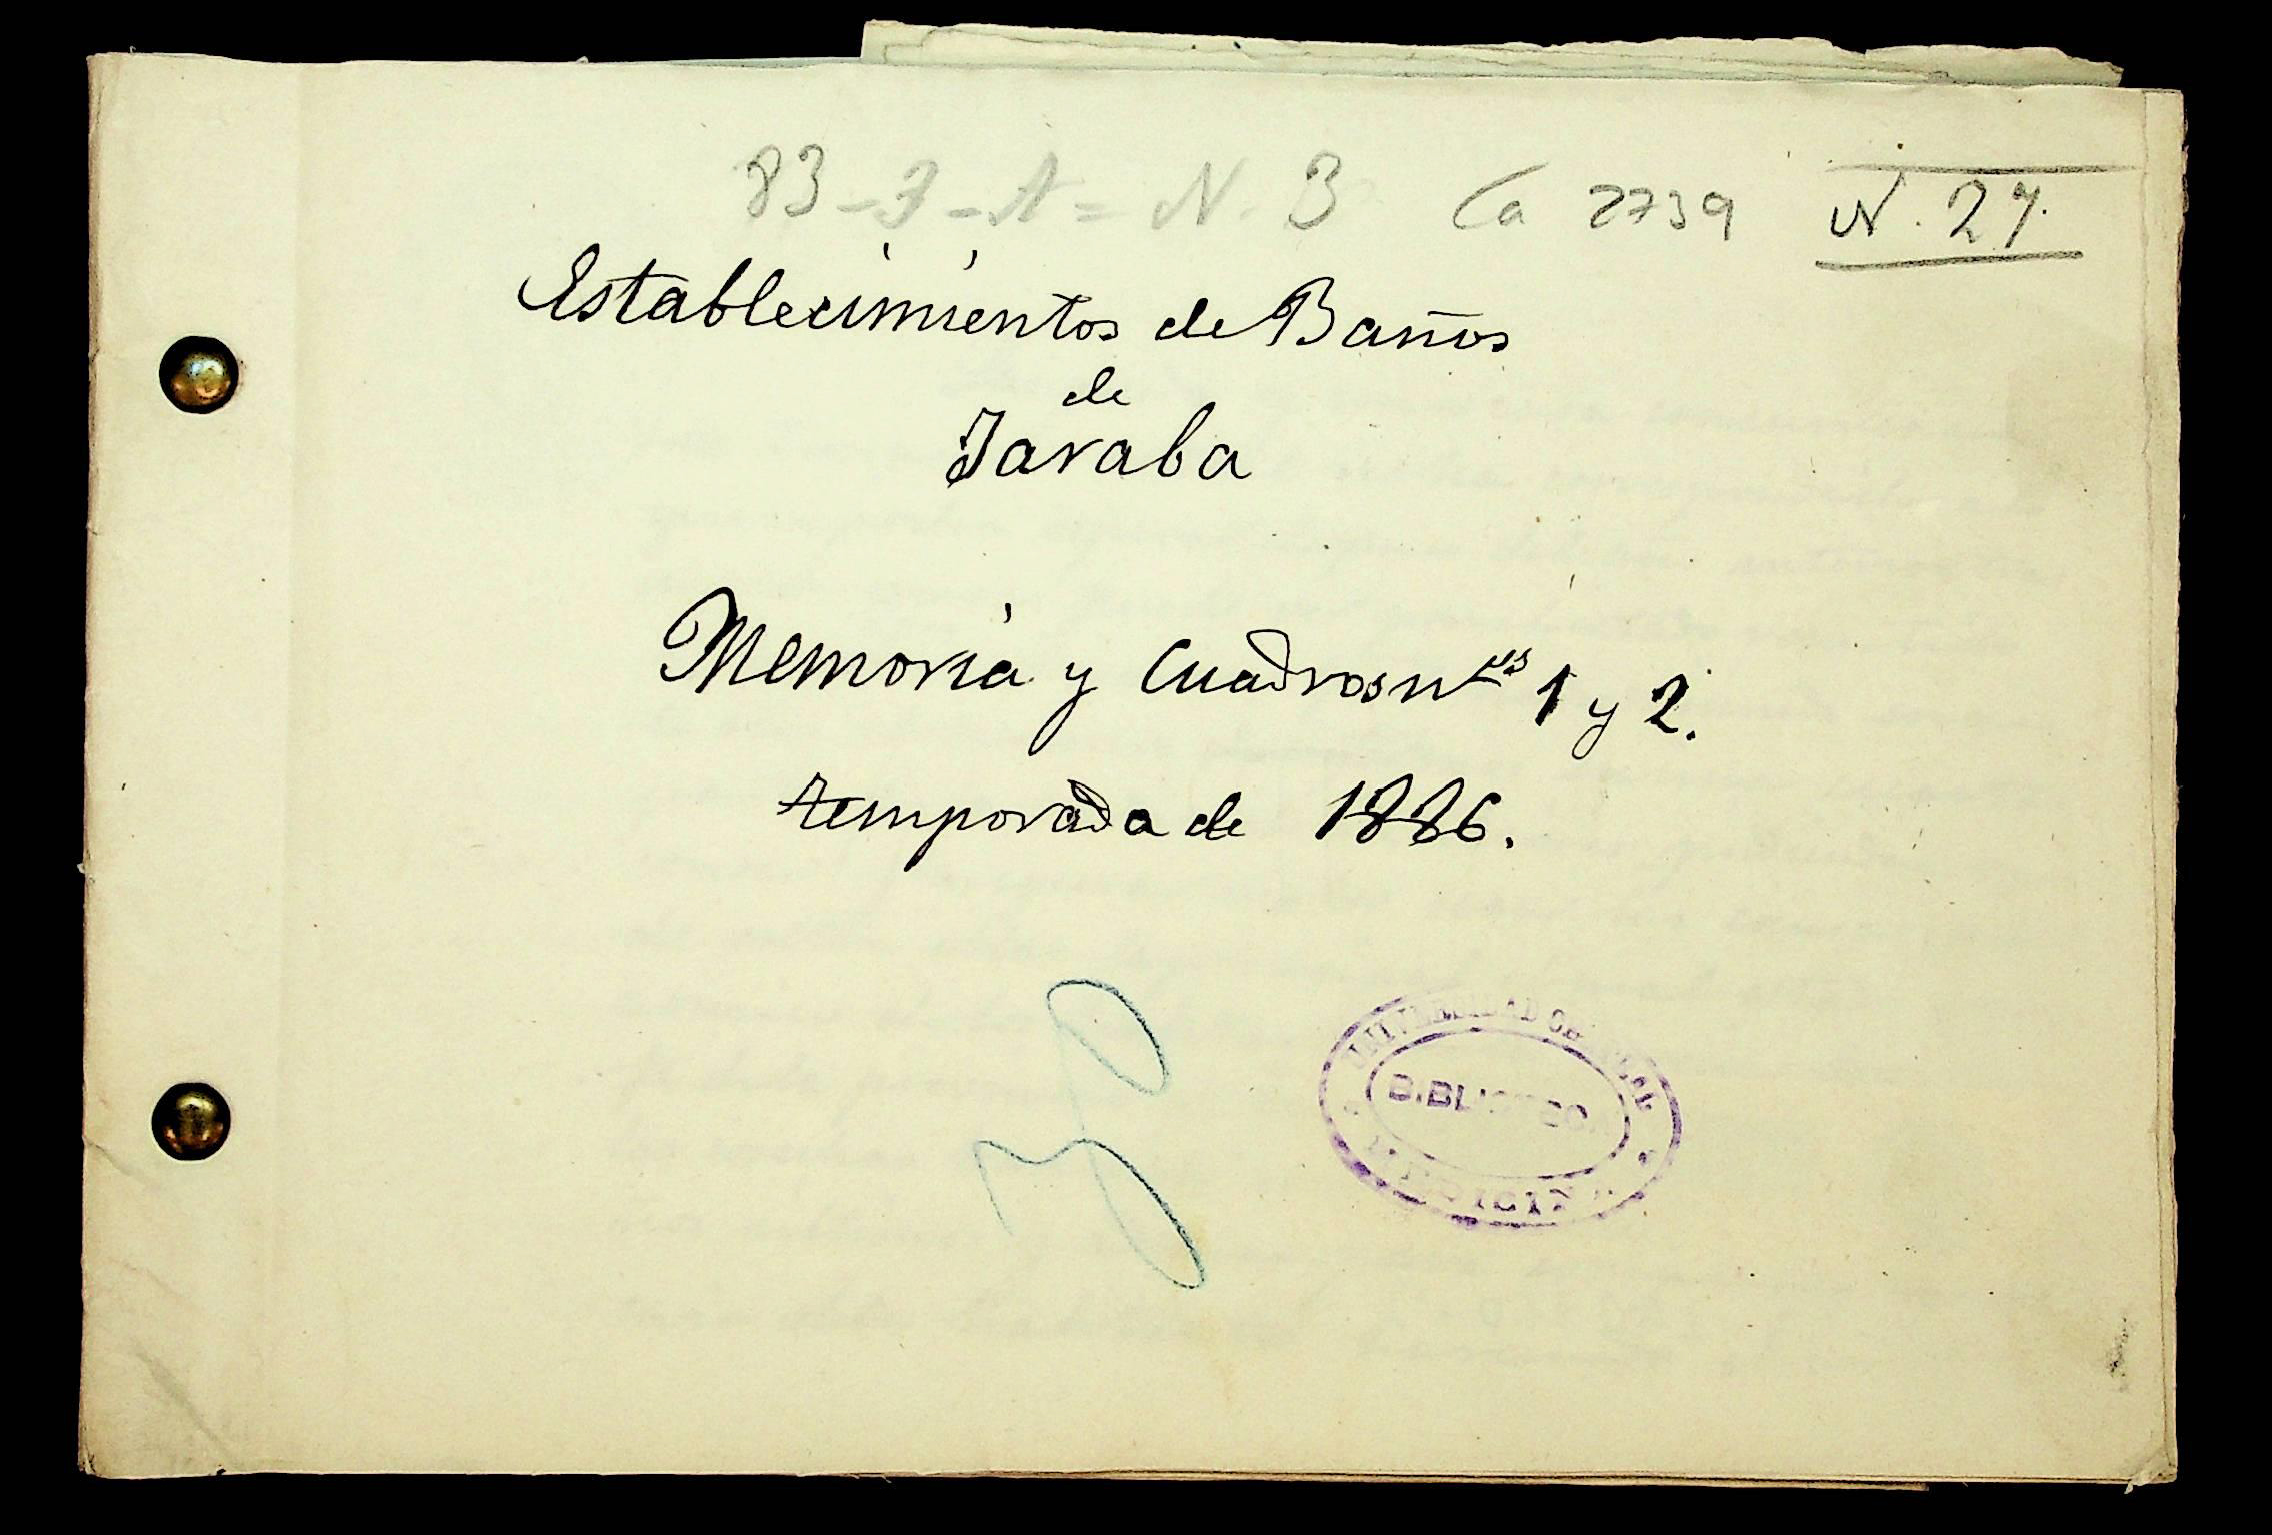 83-3-A = N. 3 Ca 2739 N. 27.
Establecimientos de Baños
de
Jaraba
Memoria y Cuadros nos 1 y 2.
temporada de 1886.
UNIVERSIDAD DE
BIBLIOTECA
MEDICINA